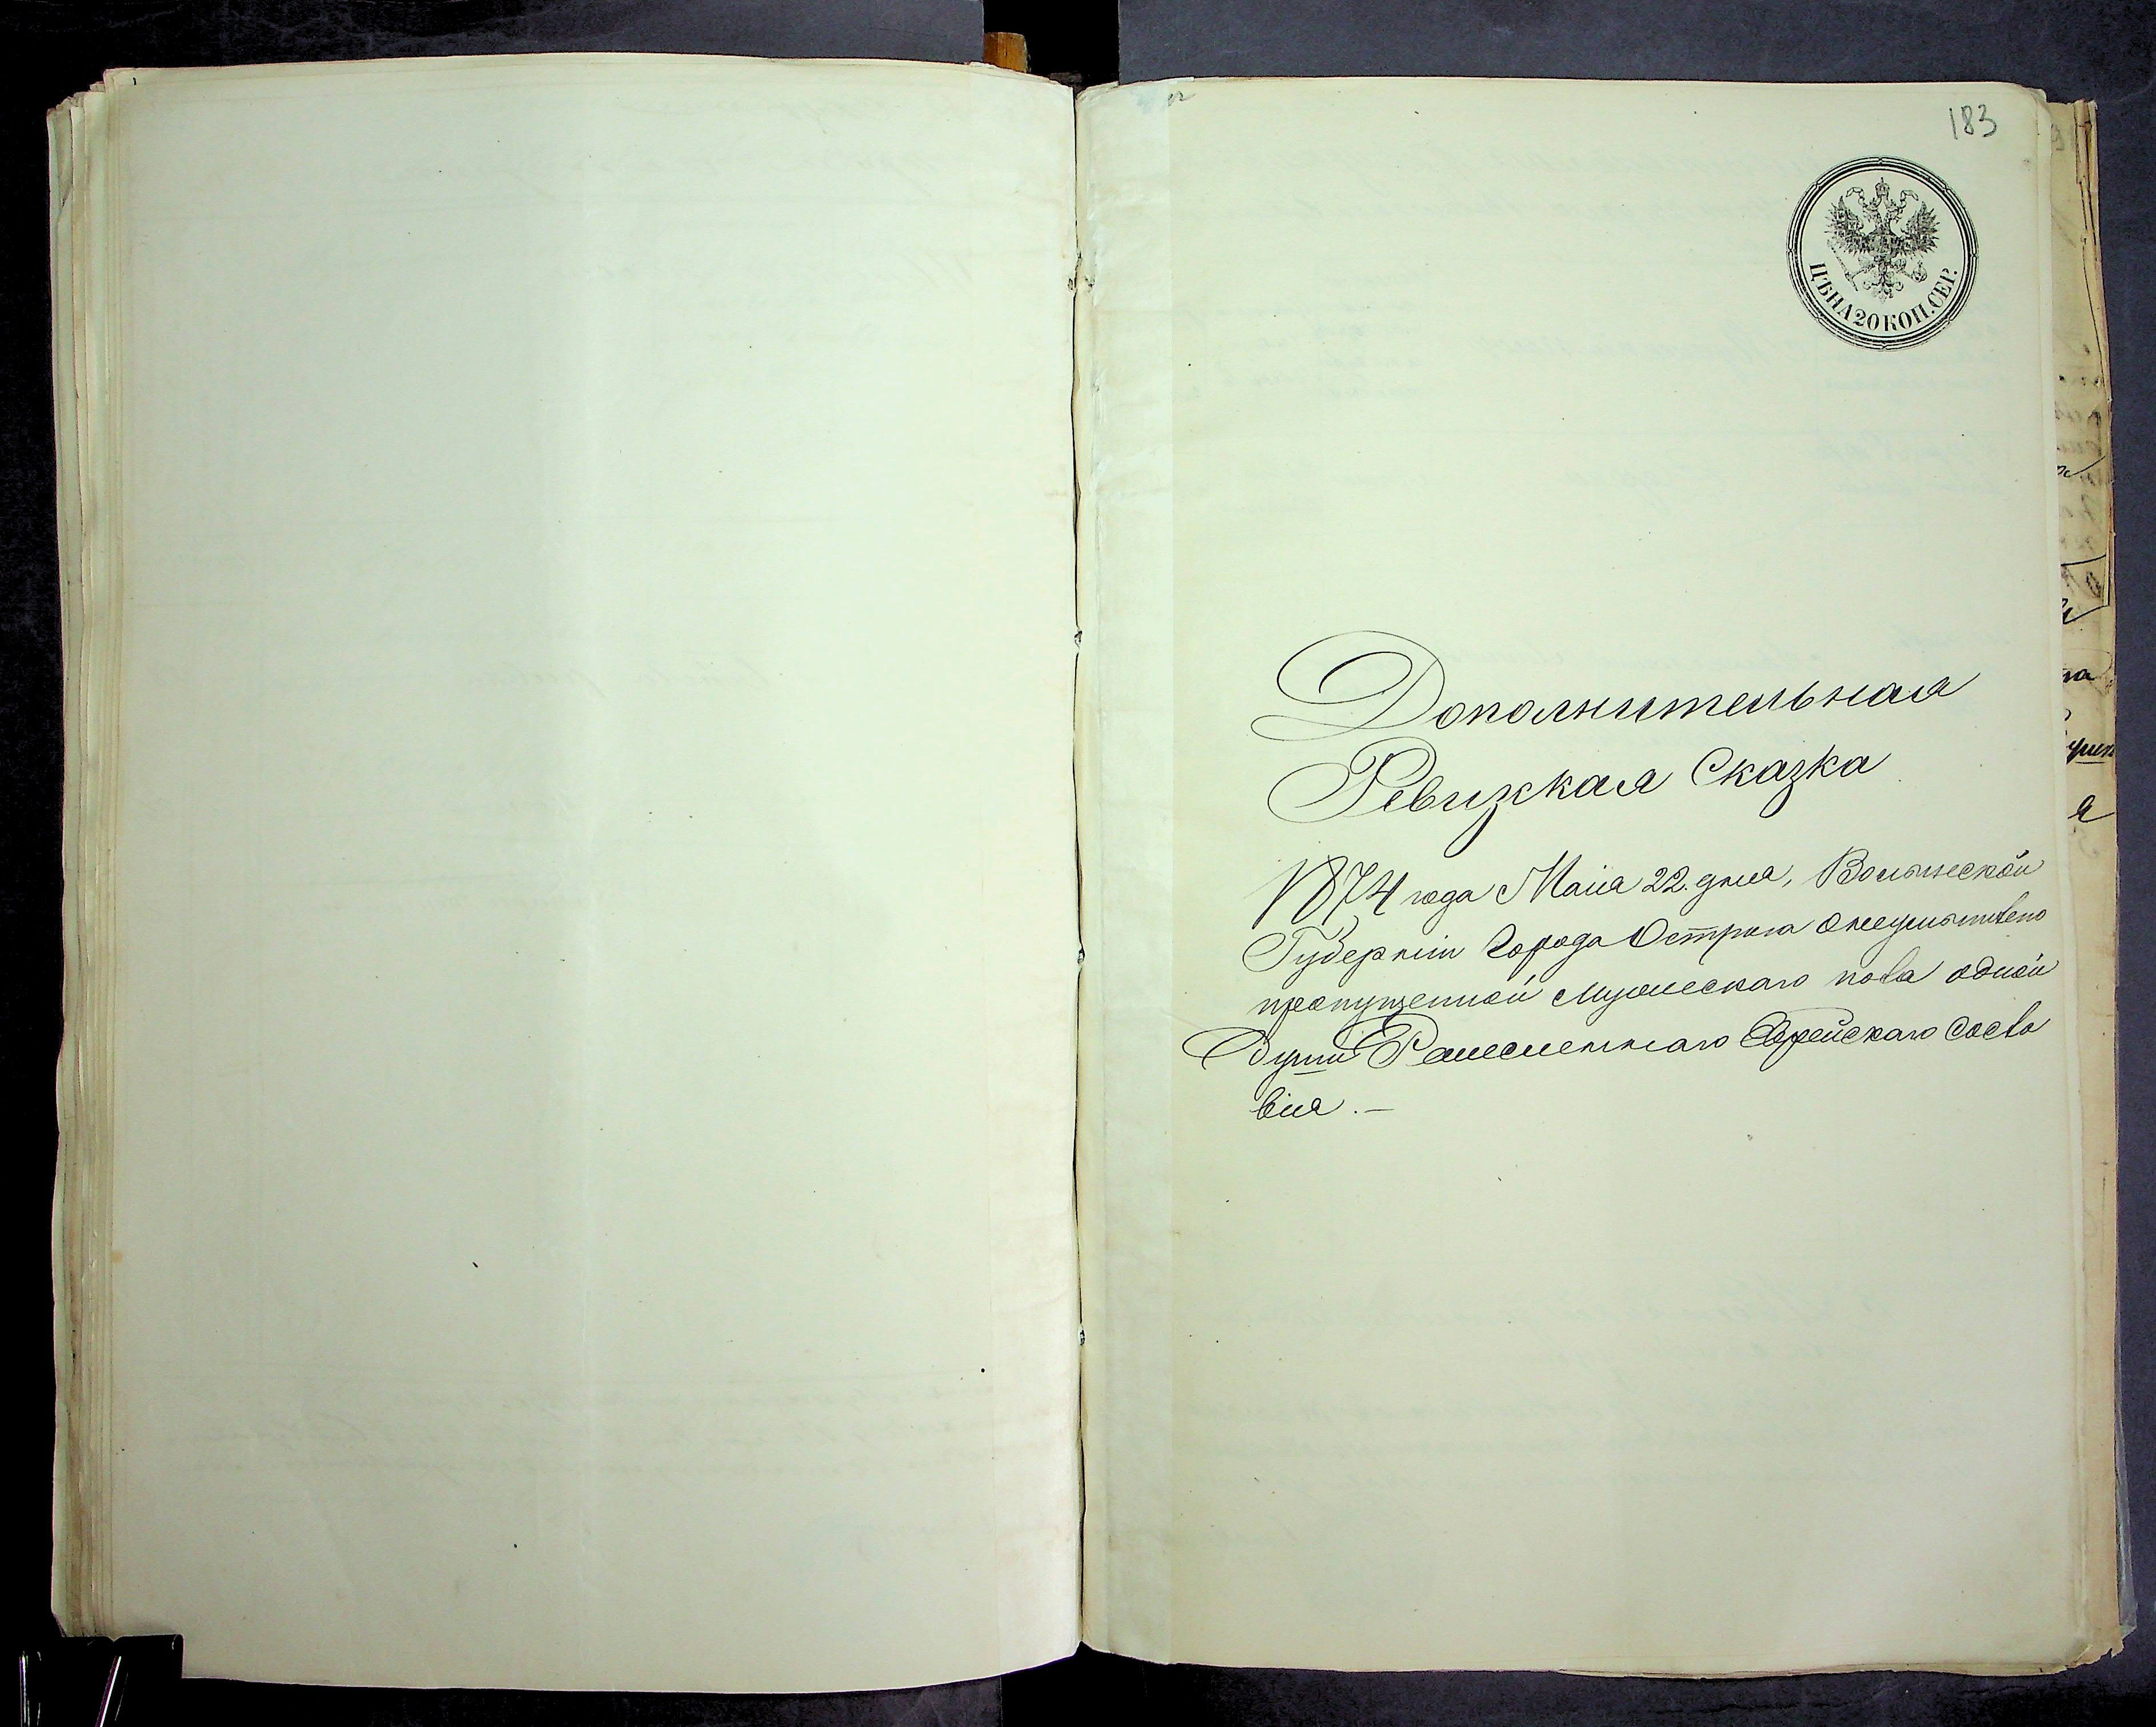 183
ЦѢНА 20 КОП. СЕР.
Дополнительная
Ревизкая Сказка
1874 года Маiя 22. дня, Волынской
Губернiи Города Острога о неумышлено
пропущенной мужескаго пола одной
души Ремесленнаго Еврейскаго Состо
вiия.—